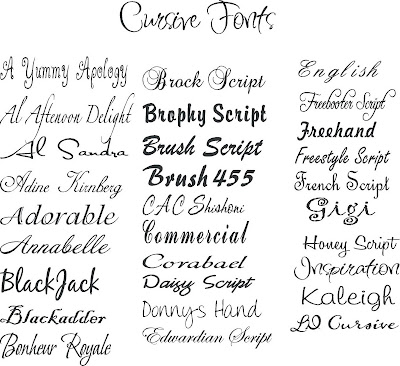 Cursive Fonts
A Yummy Apology
Al Afternoon Delight
Al Sandra
Adine Kirnberg
Adorable
Annabelle
BlackJack
Blackadder
Bonheur Royale
Brock Script
Brophy Script
Brush Script
Brush 455
CAC Shishoni
Commercial
Corabael
Daisy Script
Donnys Hand
Edwardian Script
English
Freebooter Script
Freehand
Freestyle Script
French Script
Gigi
Honey Script
Inspiration
Kaleigh
LD Cursive